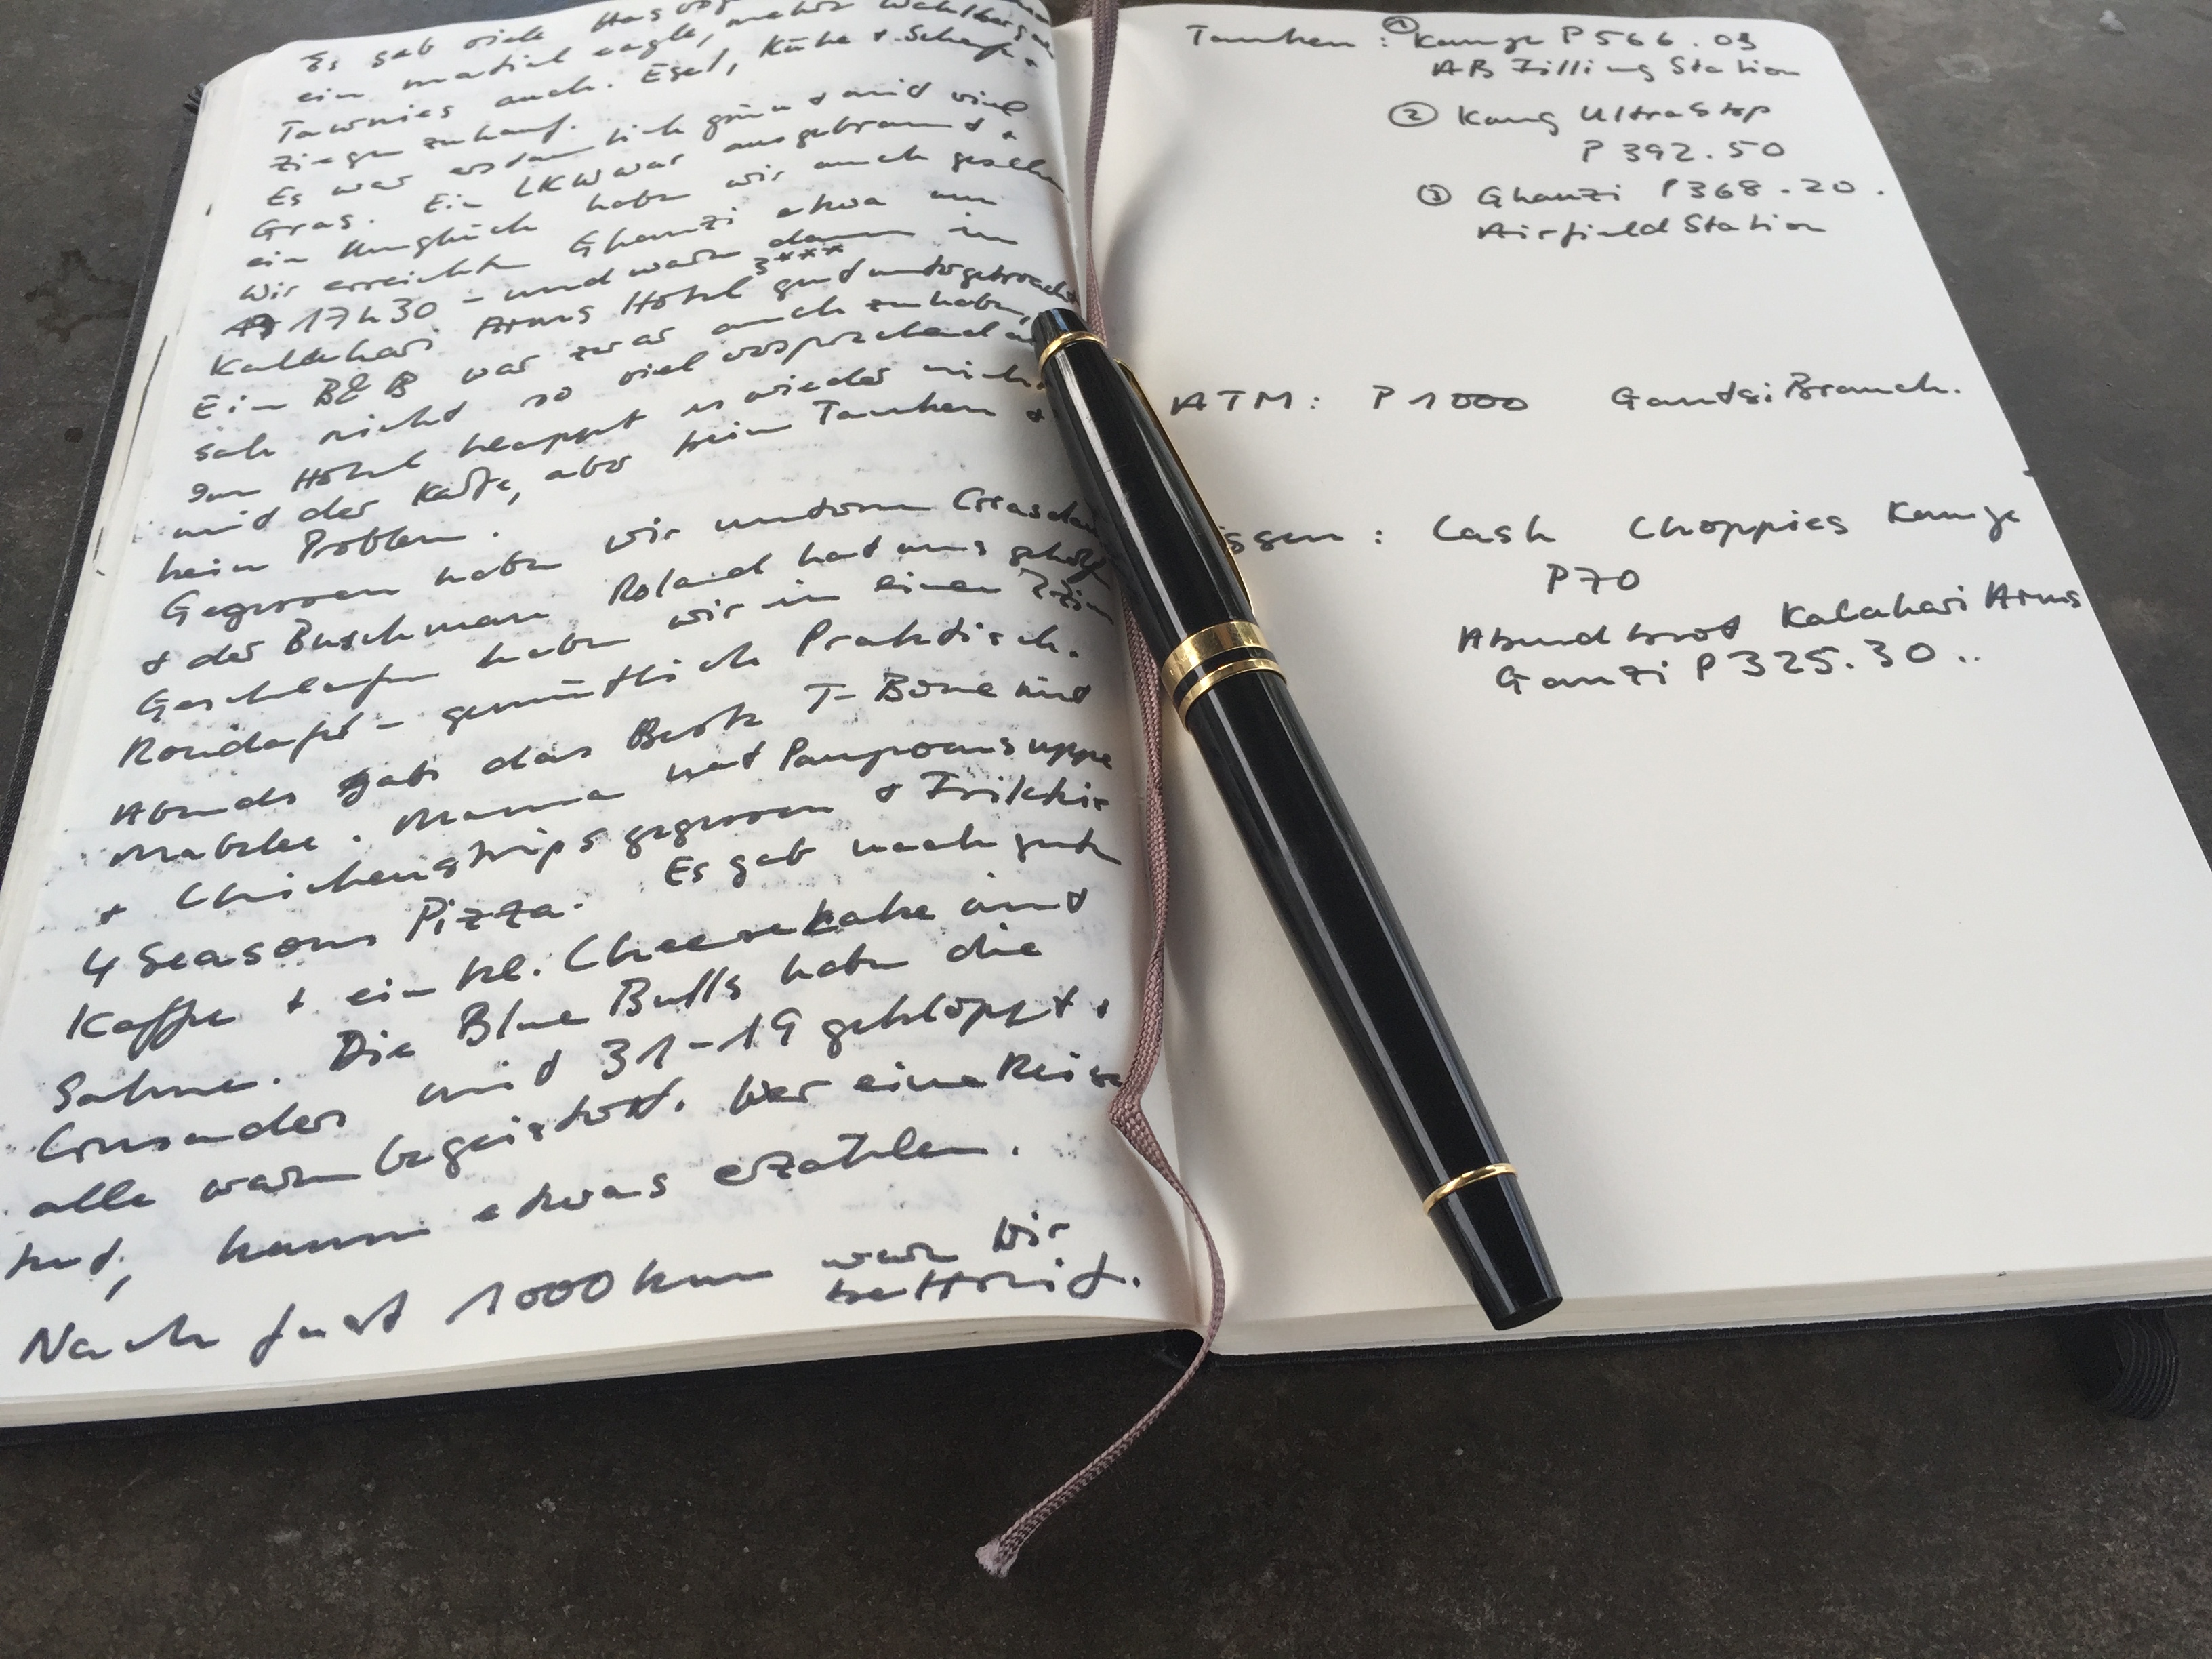 Es gab viele
ein martial eagle, mehr Wahlberg
Tawnies auch. Esel, Kühe + Schafe.
Ziegen zuhauf.
Es war erstaunlich grün + mit viel
Gras. Ein LKW war ausgebrannt +
ein Unglück haben wir auch gesehen
Wir erreichten Ghanzi etwa um
17h30 - und waren dann in
Kalahari Arms Hotel 3*** gut untergebracht
Ein B&B war zwar auch zu haben,
sah nicht so viel versprechend
Im Hotel klappt es wieder nicht
mit der Karte, aber beim Tanken +
kein Problem.
Gegessen haben wir unterm
+ der Buschmann Roland hat uns geholfen
Geschlafen haben wir in einen
Rondafel - gemütlich Praktisch.
Abends gabs das Beste T-Bone mit
. Mamma hat
+ Chickenstrips gegessen + Frikkie
4 Seasons Pizza. Es gab noch guten
Kaffee + ein kl. Cheesekake mit
Sahne. Die Blue Bulls haben die
Crusaders mit 31-19 gekloppt +
alle waren begeistert. Wer eine Reise
tut, kann etwas erzählen.
Nach fast 1000km waren Wir
bettreif.
Tanken : ① Kange P566.03
AB Filling Station
② Kang Ultra Stop
P 392.50
③ Ghanzi P368.20.
Airfield Station
ATM: P1000 Gantsi Branch.
ssen : Cash Choppies Kange
P70
Abendbrot Kalahari Arms
Ganzi P325.30..